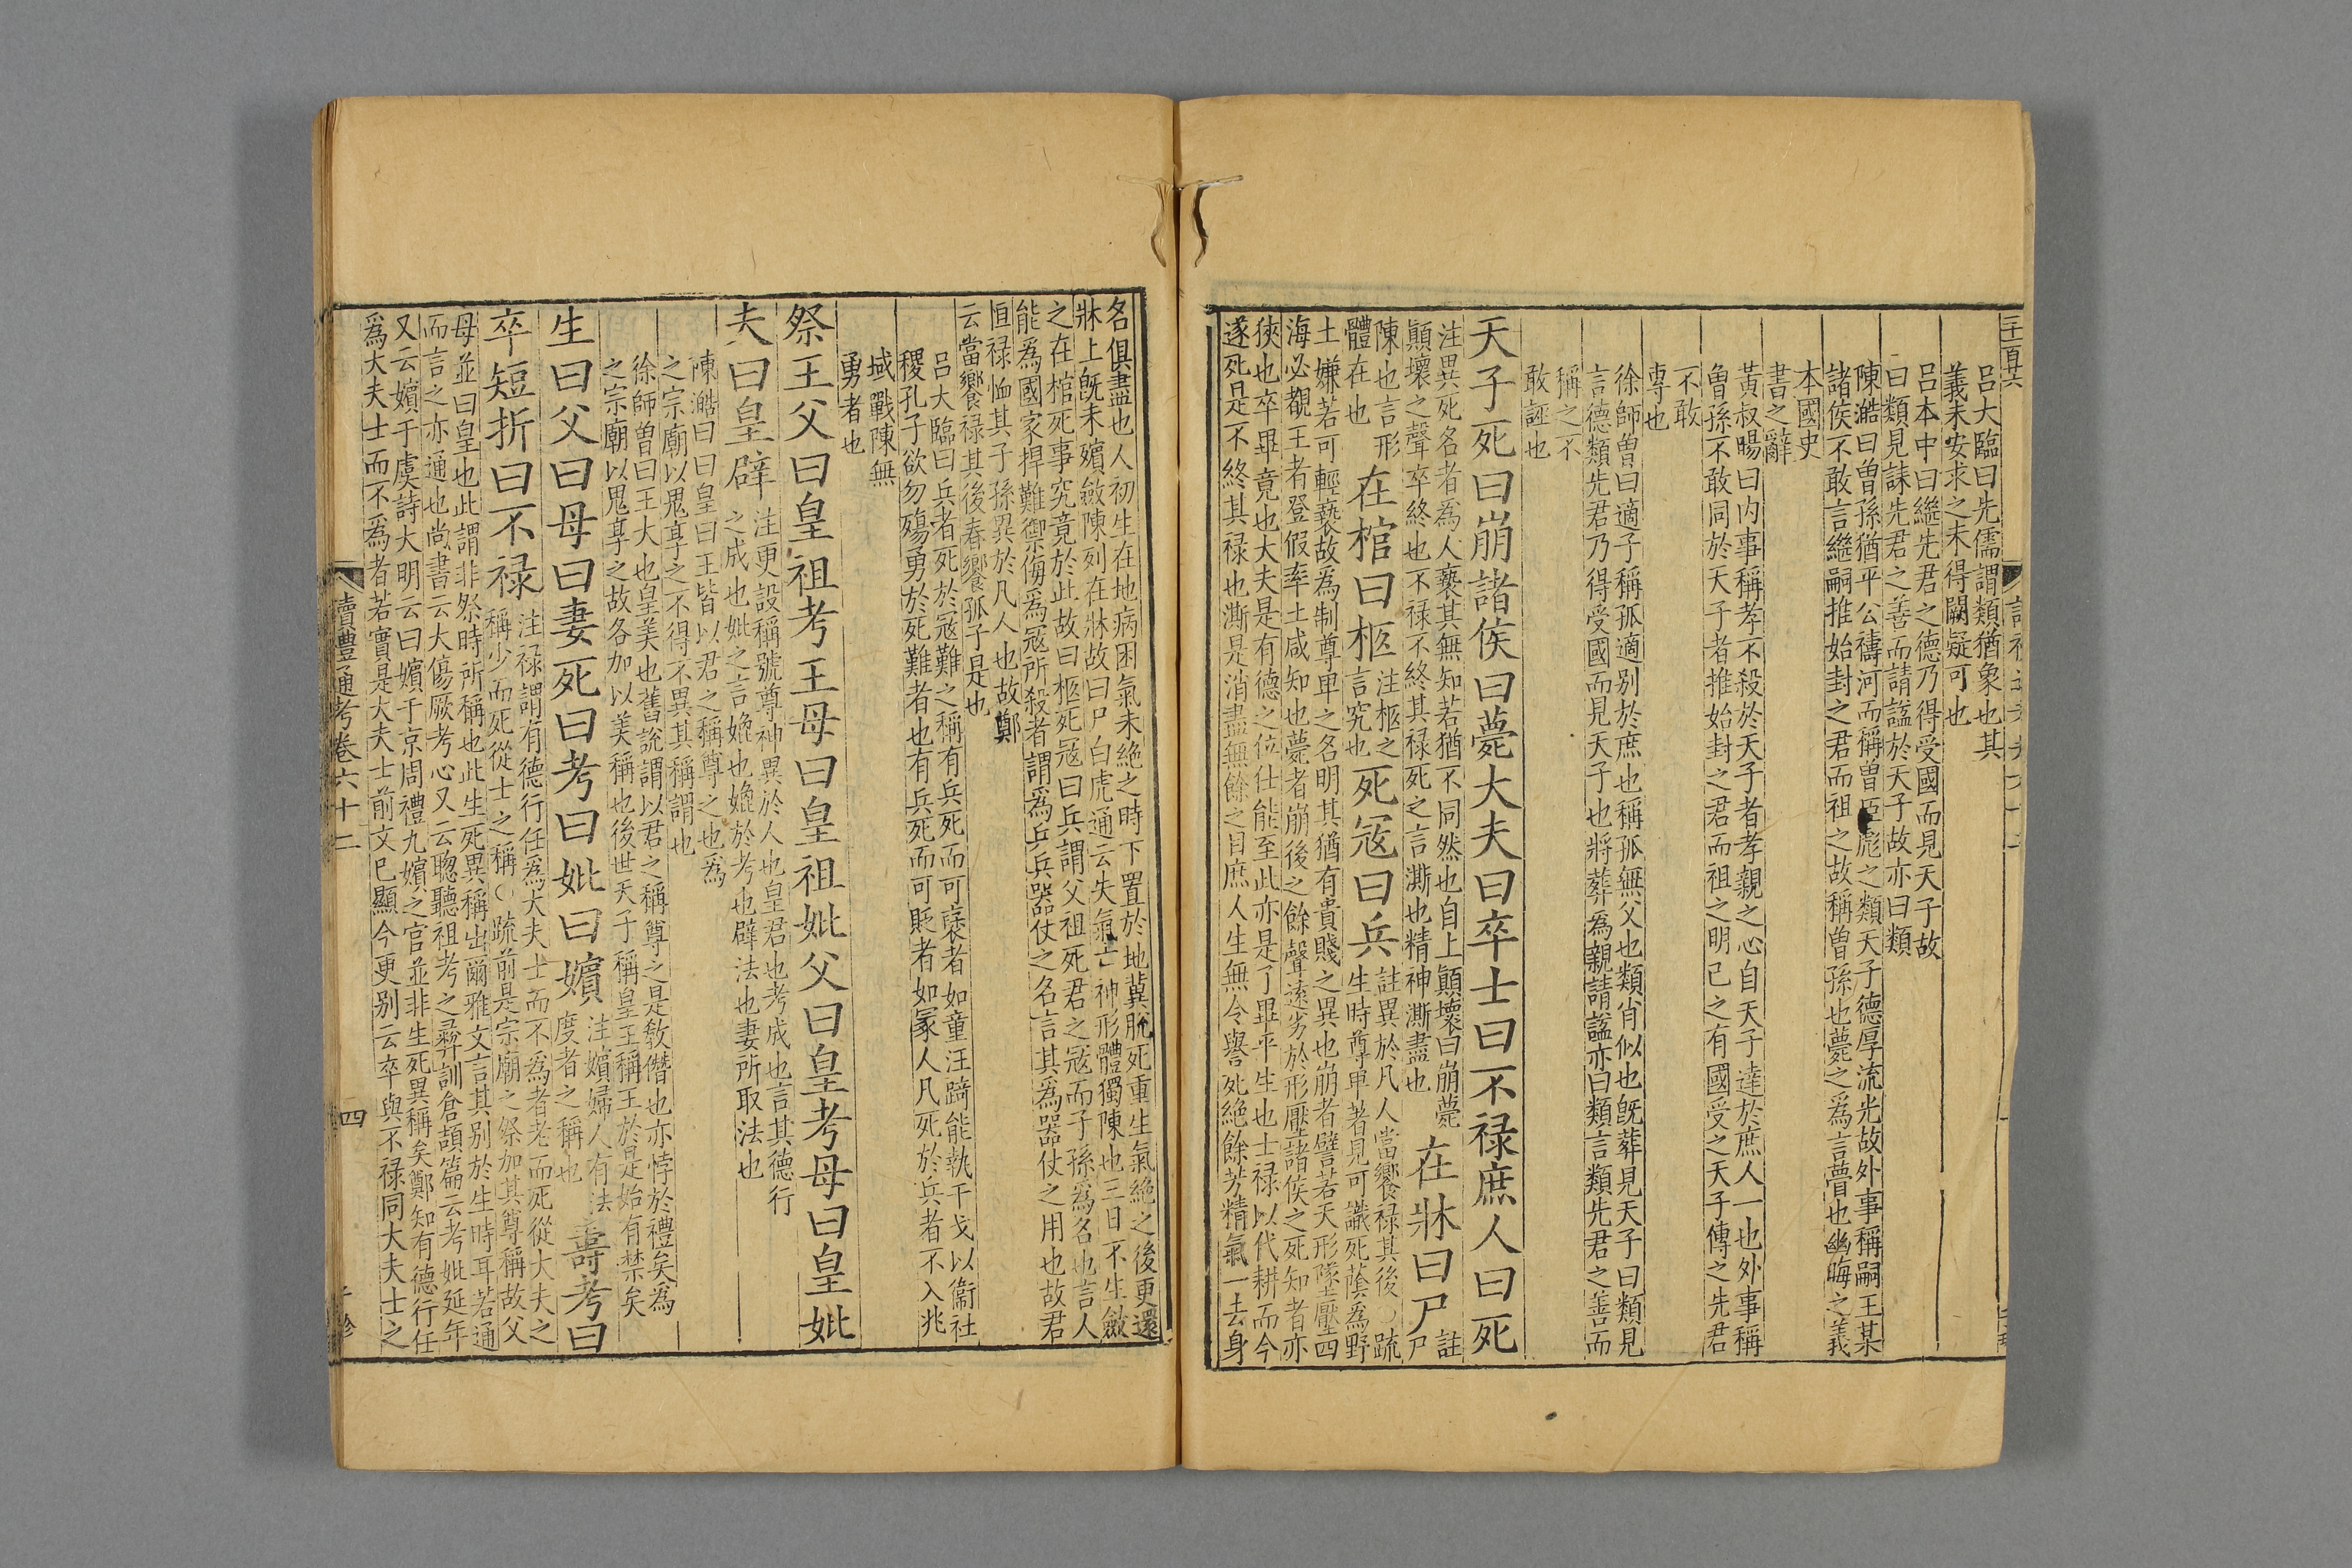 三百六
呂大臨曰先儒謂類猶象也其
義未安求之未得闕疑可也
呂本中曰繼先君之德乃得受國而見天子故
曰類見誄先君之善而請諡於天子故亦曰類
陳澔曰曽孫猶平公禱河而稱曽臣彪之類天子德厚流光故外事稱嗣王某
諸侯不敢言繼嗣推始封之君而祖之故稱曽孫也薨之爲言瞢也幽晦之義
本國史
書之辭
黃叔暘曰内事稱孝不殺於天子者孝親之心自天子達於庶人一也外事稱
曽孫不敢同於天子者推始封之君而祖之明已之有國受之天子傳之先君
不敢
專也
徐師曽曰適子稱孤適别於庶也稱孤無父也類肖似也旣葬見天子曰類見
言德類先君乃得受國而見天子也將葬爲親請諡亦曰類言類先君之善而
稱之不
敢誣也
天子死曰崩諸侯曰薨大夫曰卒士曰不禄庶人曰死
注異死名者爲人褻其無知若猶不同然也自上顚壞曰崩薨
顚壞之聲卒終也不禄不終其禄死之言澌也精神澌盡也
在牀曰尸
註尸
陳也言形
體在也
在棺曰柩
注柩之
言究也
死冦曰兵
註異於凡人當饗禄其後○疏
生時尊卑著見可識死蔭爲野
土嫌若可輕褻故爲制尊卑之名明其猶有貴賤之異也崩者譬若天形墜壓四
海必覩王者登假率土咸知也薨者崩後之餘聲遠劣於形壓諸侯之死知者亦
狹也卒畢竟也大夫是有德之位仕能至此亦是了畢平生也士禄以代耕而今
遂死是不終其禄也澌是消盡無餘之目庶人生無令譽死絶餘芳精氣一去身
名俱盡也人初生在地病困氣未絶之時下置於地冀脫死重生氣絶之後更還
牀上旣未殯斂陳列在牀故曰尸白虎通云失氣亡神形體獨陳也三日不生斂
之在棺死事究竟於此故曰柩死冦曰兵謂父祖死君之冦而子孫爲名也言人
能爲國家捍難禦侮爲冦所殺者謂爲兵兵器仗之名言其爲器仗之用也故君
恒禄恤其子孫異於凡人也故鄭
云當饗禄其後春饗孤子是也
呂大臨曰兵者死於冦難之稱有兵死而可襃者如童汪踦能執干戈以衞社
稷孔子欲勿殤勇於死難者也有兵死而可貶者如冡人凡死於兵者不入兆
域戰陳無
勇者也
祭王父曰皇祖考王母曰皇祖妣父曰皇考母曰皇妣
夫曰皇辟
注更設稱號尊神異於人也皇君也考成也言其德行
之成也妣之言媲也媲於考也辟法也妻所取法也
陳澔曰曰皇曰王皆以君之稱尊之也爲
之宗廟以鬼享之不得不異其稱謂也
徐師曽曰王大也皇美也舊說謂以君之稱尊之是敎僭也亦悖於禮矣爲
之宗廟以鬼享之故各加以美稱也後世天子稱皇王稱王於是始有禁矣
生曰父曰母曰妻死曰考曰妣曰嬪
注嬪婦人有法
度者之稱也
壽考曰
卒短折曰不禄
注禄謂有德行任爲大夫士而不爲者老而死從大夫之
稱少而死從士之稱○疏前是宗廟之祭加其尊稱故父
母並曰皇也此謂非祭時所稱也此生死異稱出爾雅文言其别於生時耳若通
而言之亦通也尚書云大傷厥考心又云聦聽祖考之彞訓倉頡篇云考妣延年
又云嬪于虞詩大明云曰嬪于京周禮九嬪之官並非生死異稱矣鄭知有德行任
爲大夫士而不爲者若實是大夫士前文已顯今更别云卒與不禄同大夫士之
讀禮通考卷六十二
四